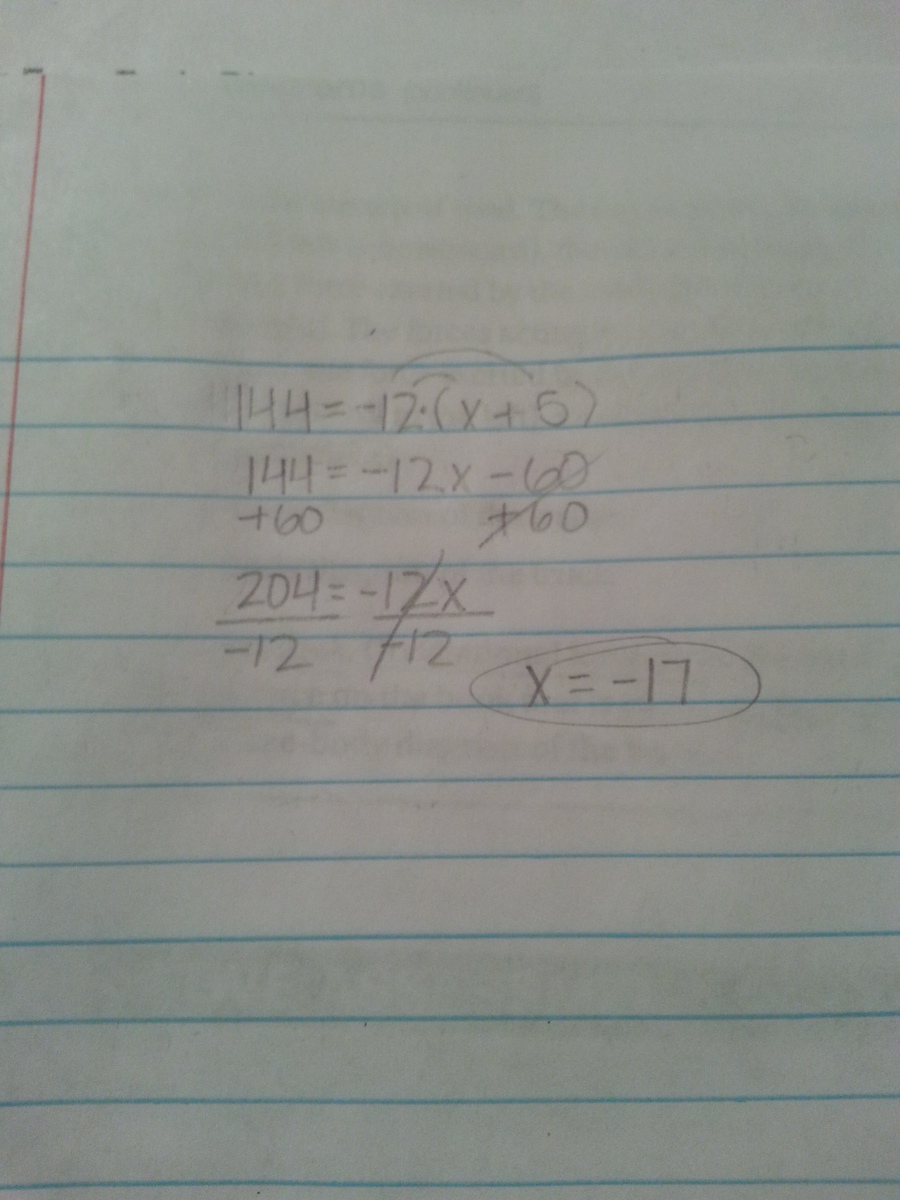 144 = -12·(x + 5)
144 = -12x - 60
+60 +60
204 = -12x
-12 -12
x = -17